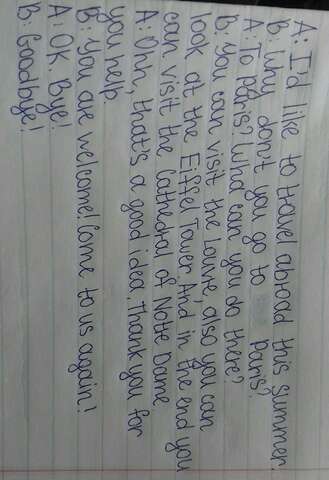 A: I'd like to travel abroad this summer.
B: Why don't you go to Paris?
A: To Paris? What can you do there?
B: You can visit the Louvre, also you can
look at the Eiffel Tower. And in the end you
can visit the Cathedral of Notte Dame
A: Ohh, that's a good idea. Thank you for
you help.
B: You are welcome! Come to us again!
A: OK. Bye!
B: Goodbye!